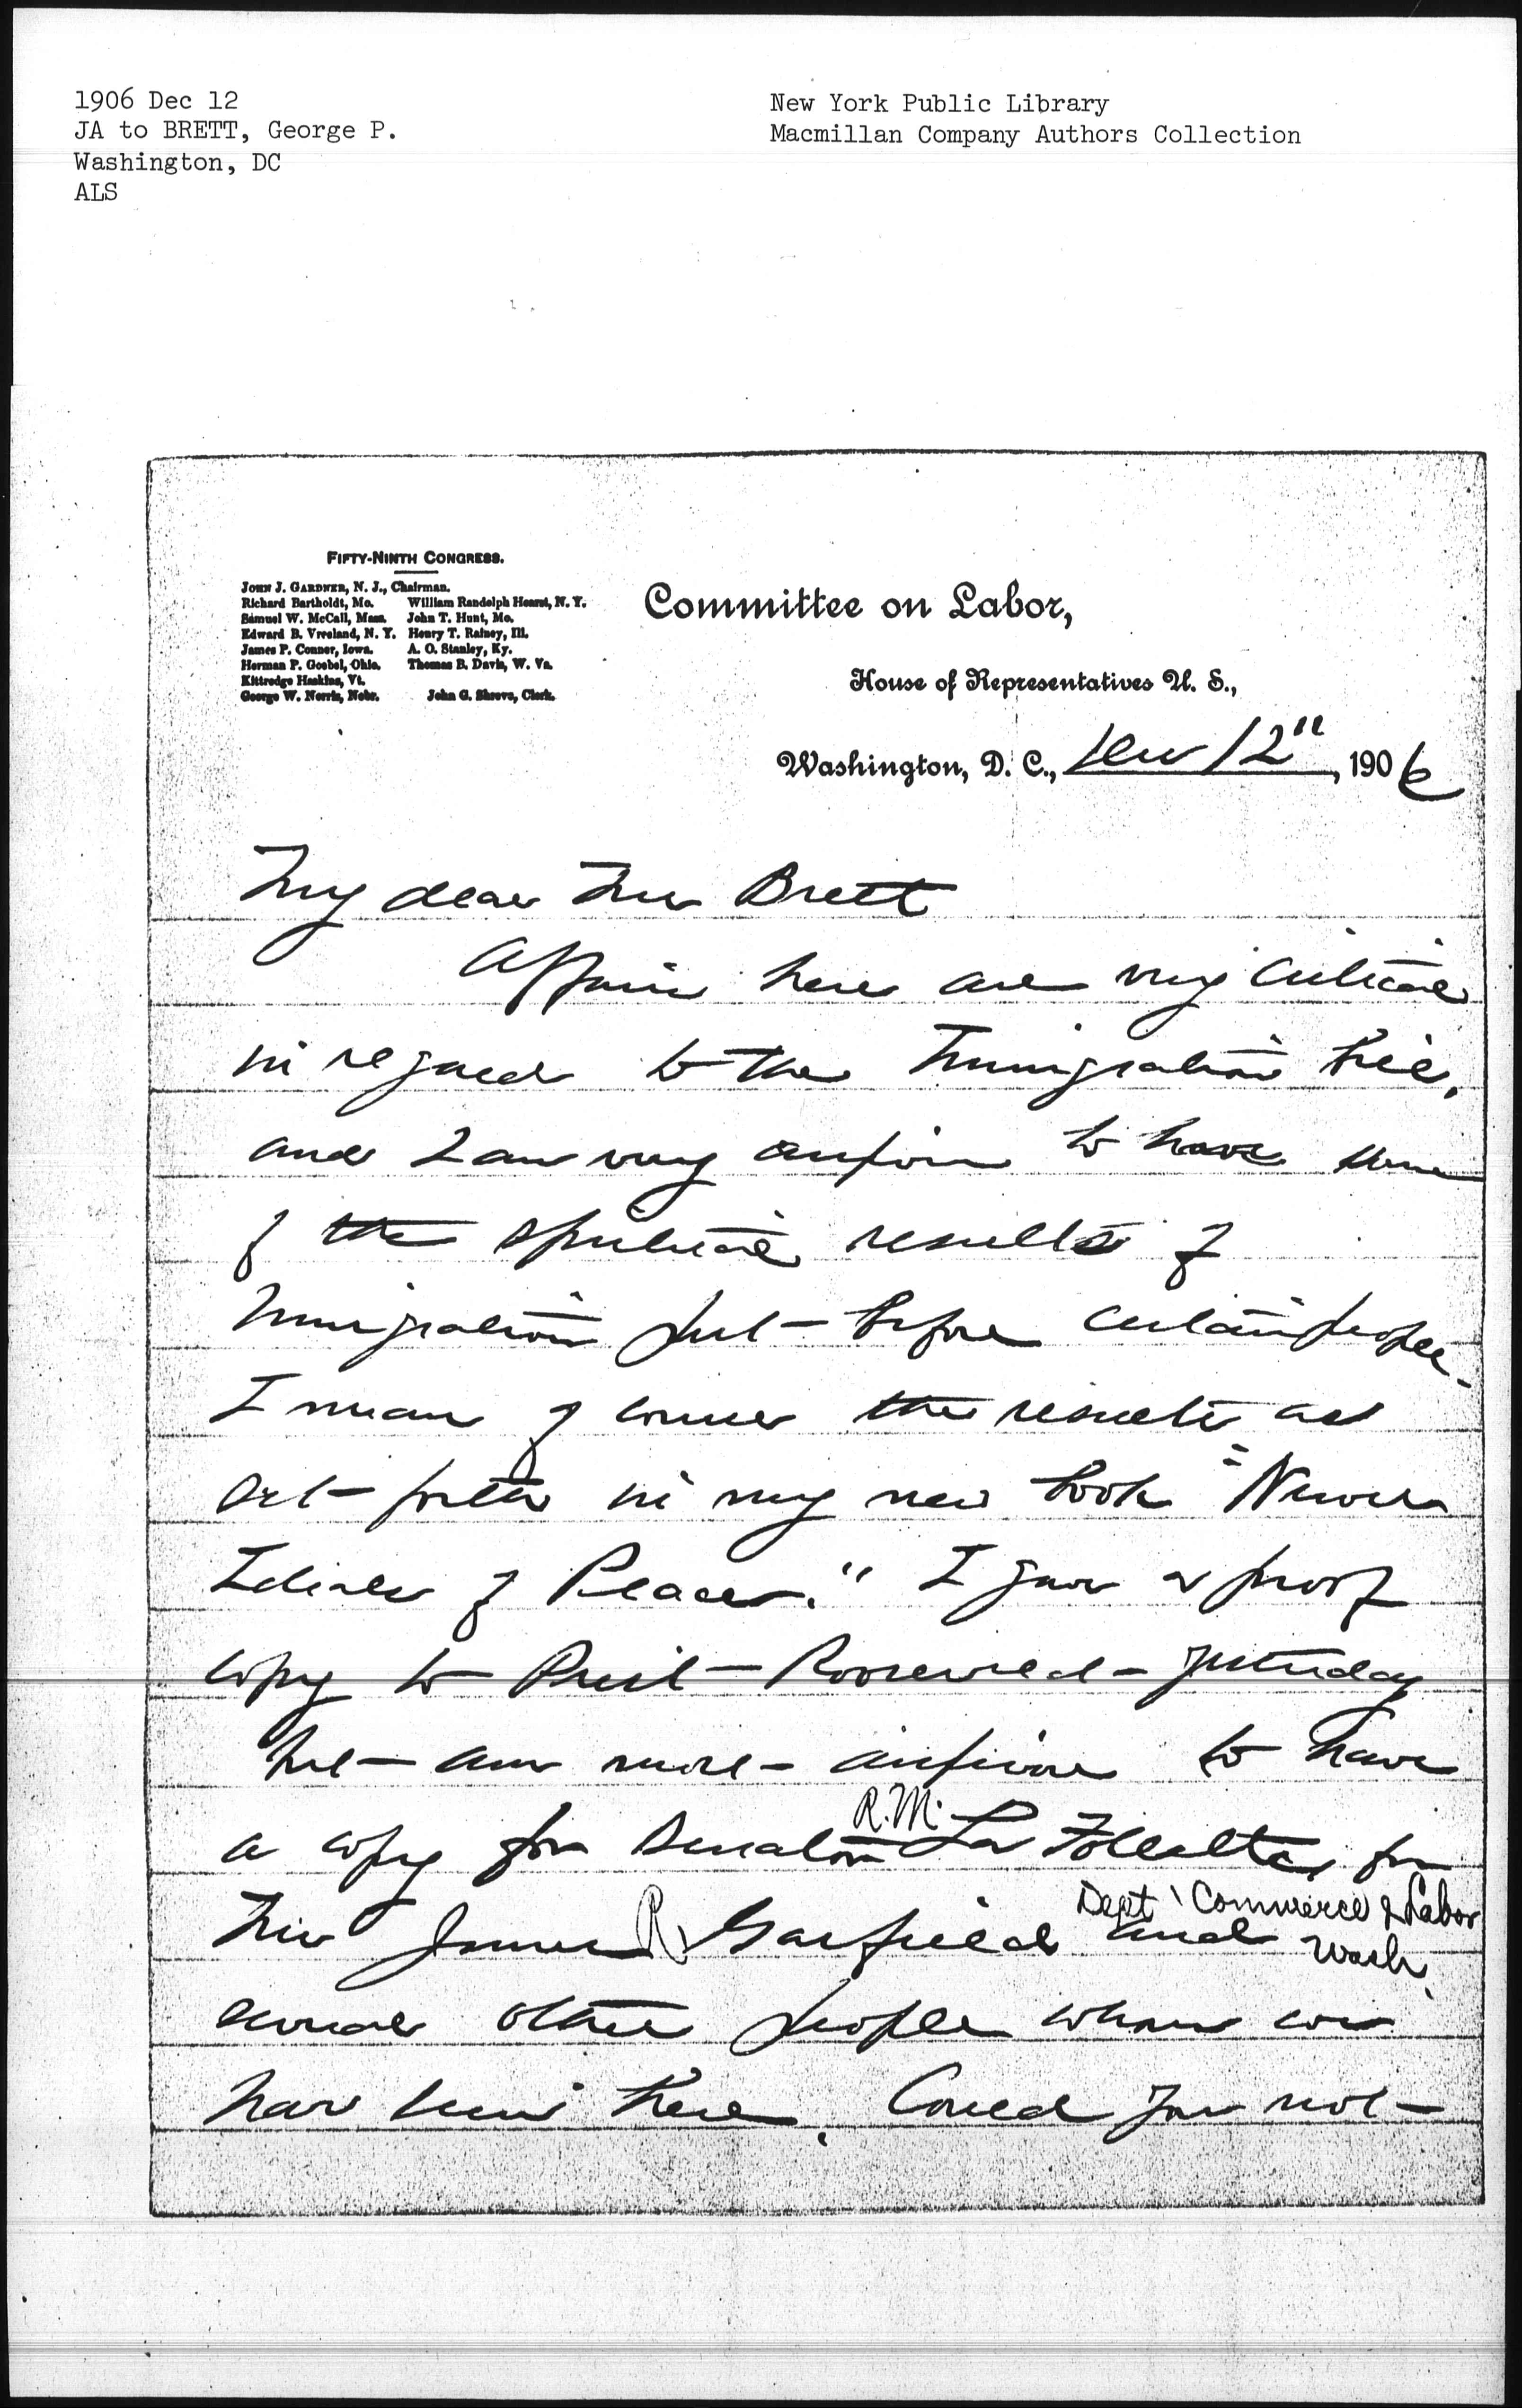 1906 Dec 12
JA to BRETT, George P.
Washington, DC
ALS
New York Public Library
Macmillan Company Authors Collection
FIFTY-NINTH CONGRESS.
JOHN J. GARDNER, N. J., Chairman.
Richard Bartholdt, Mo.
Samuel W. McCall, Mass.
Edward B. Vreeland, N. Y.
James P. Conner, Iowa.
Herman P. Goebel, Ohio.
Kittredge Haskins, Vt.
George W. Norris, Nebr.
William Randolph Hearst, N. Y.
John T. Hunt, Mo.
Henry T. Rainey, Ill.
A. O. Stanley, Ky.
Thomas B. Davis, W. Va.
John G. Shreve, Clerk.
Committee on Labor,
House of Representatives U. S.,
Washington, D. C., Dec 12", 1906
My dear Mr Brett
Affairs here are very critical
in regard to the Immigration bill,
and I am very anxious to have some
of the spiritual results of
Immigration put before certain people.
I mean of course the results as
set forth in my new book "Newer
Ideals of Peace." I gave a proof
copy to Prest Roosevelt yesterday
but am most anxious to have
a copy for Senator R.M. La Follette, for
Mr James R. Garfield and
Dept Commerce & Labor
Wash.
several other people whom we
have seen here. Could you not